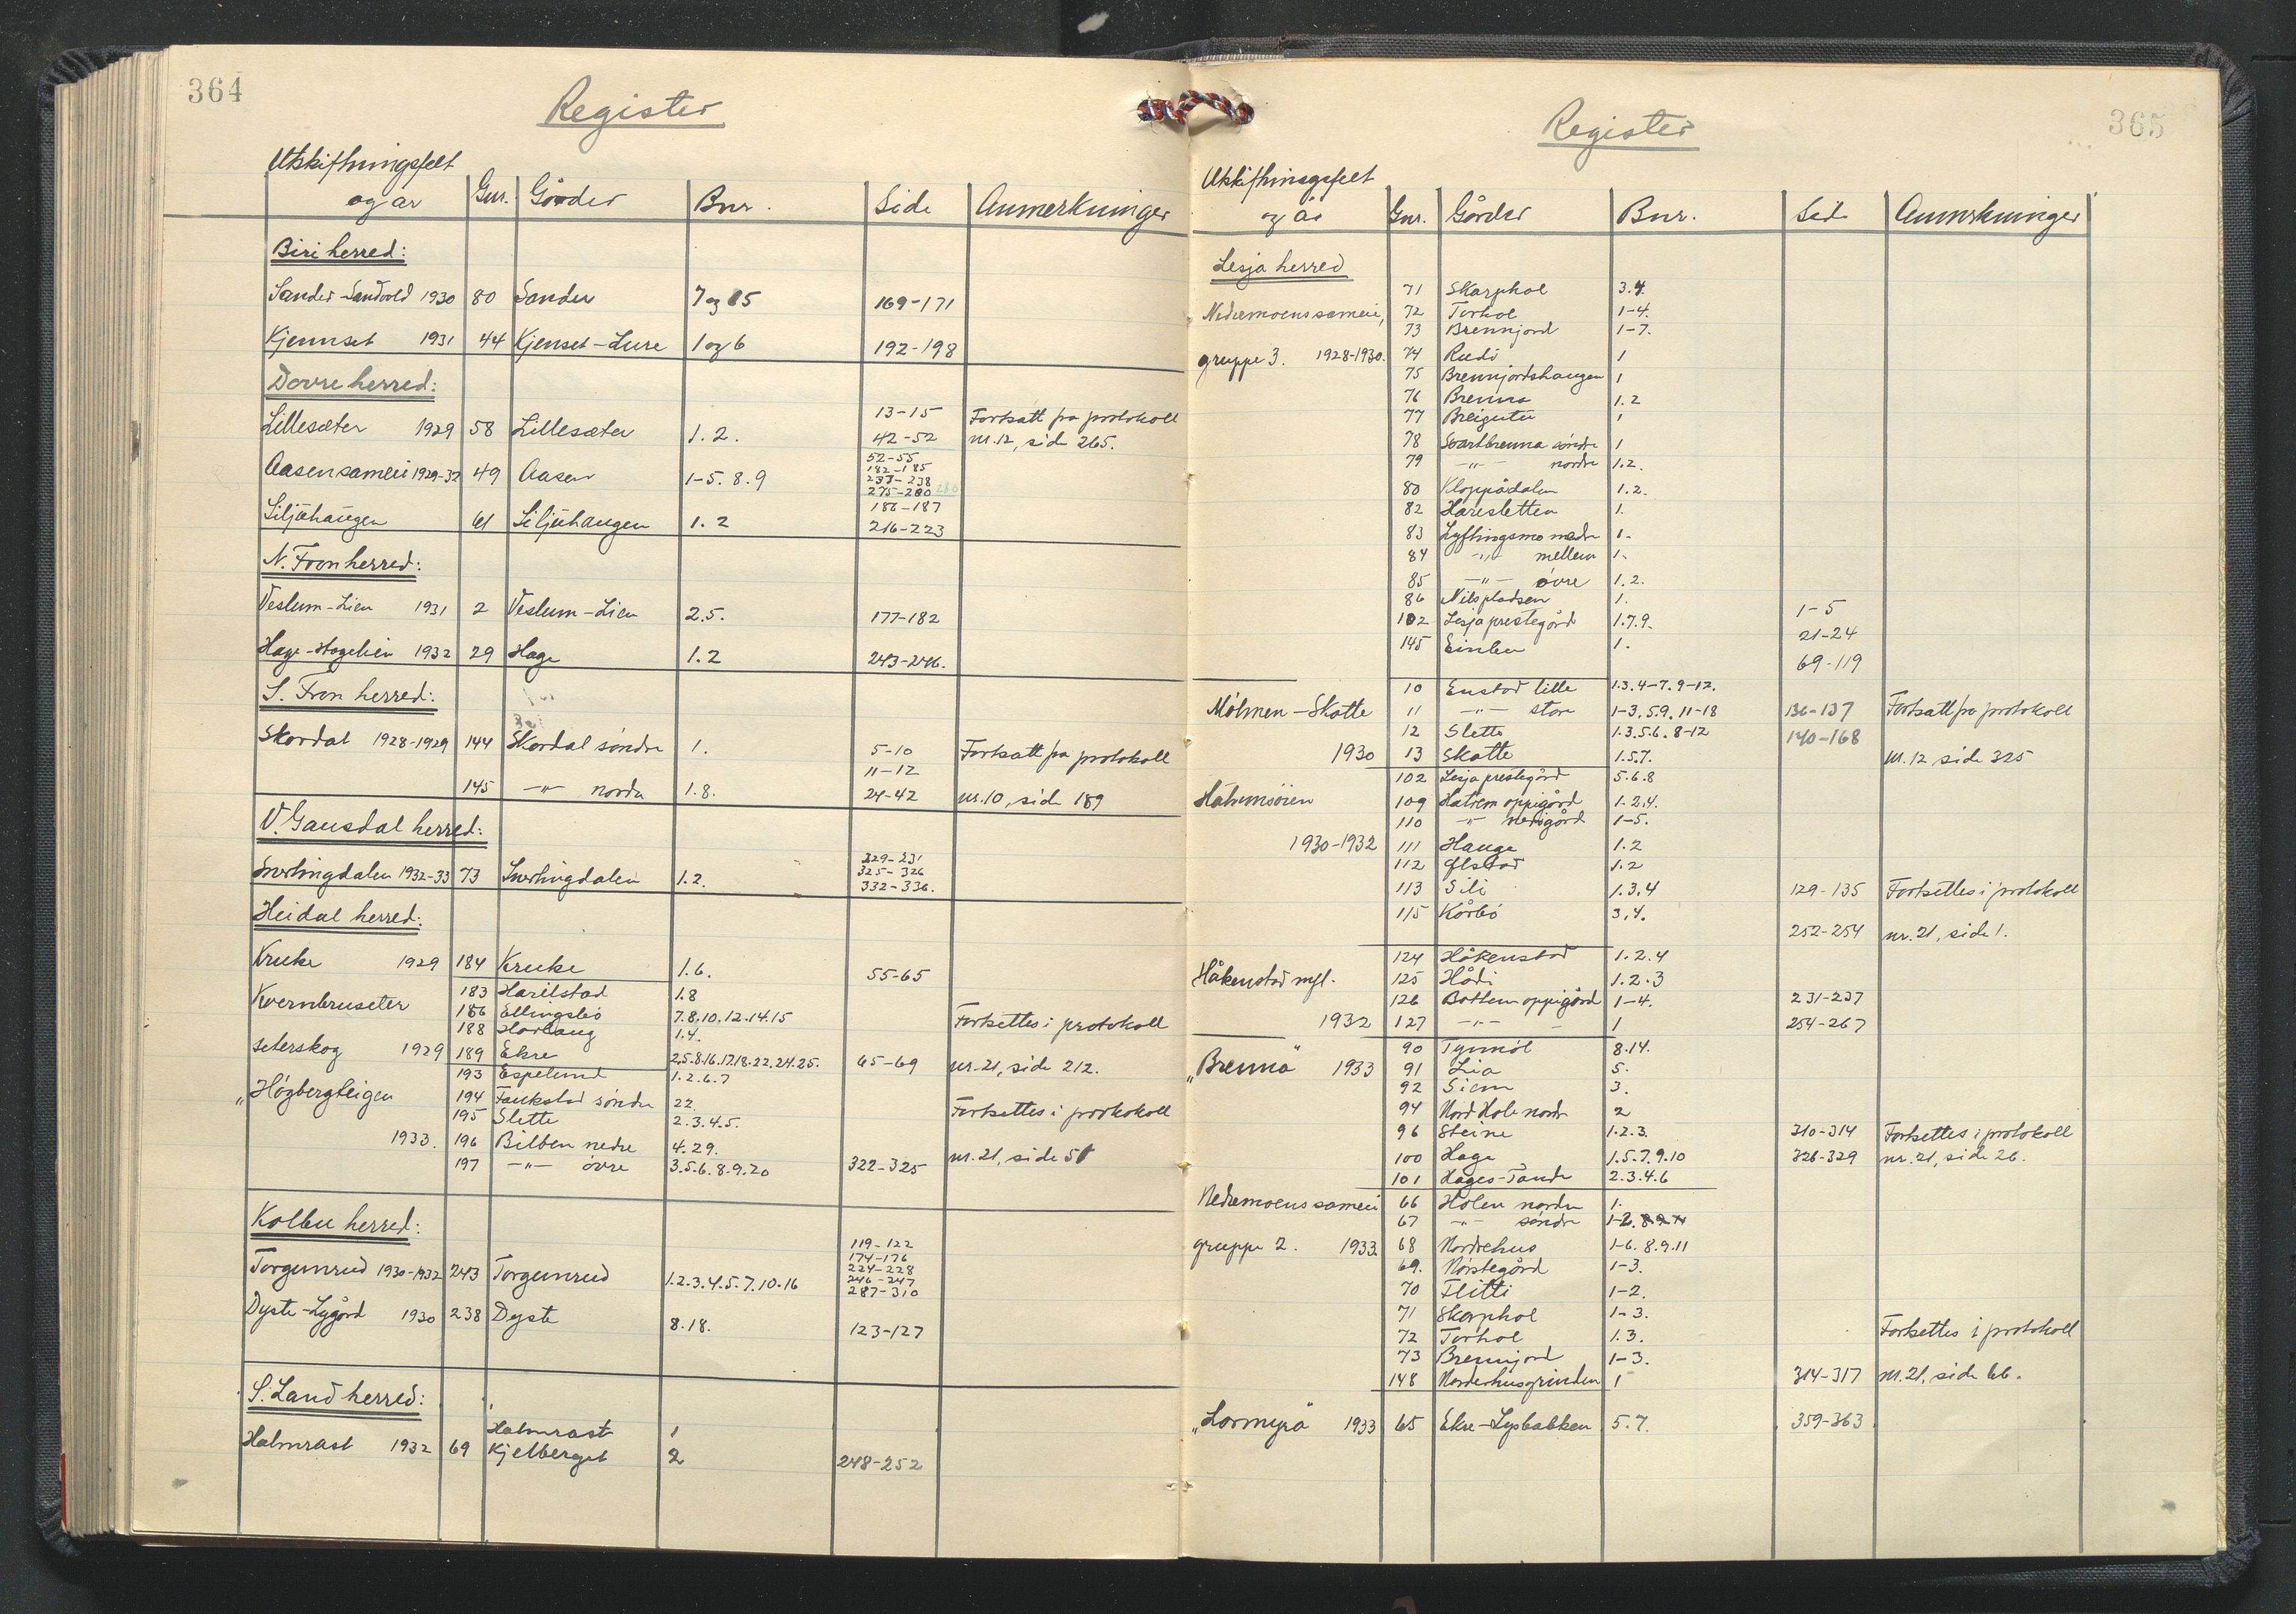 364
Register
Utskiftningsfelt
og år Gnr. Gårder Bnr. Side Anmerkninger
Biri herred:
Sander-Sandvold 1930 80 Sander 7 og 15 169-171
Kjennset 1931 44 Kjenset-Lure 1 og 6 192-198
Dovre herred:
Lillesæter 1929 58 Lillesæter 1.2. 13-15 Fortsatt fra protokoll
42-52 nr.12, side 265.
52-55
Aasen sameie 1929-32 49 Aasen 1-5. 8. 9 182-185
237-238
275-280
186-187
Siljuhaugen 61 Siljuhaugen 1. 2 216-223
N. Fron herred:
Veslum-Lien 1931 2 Veslum-Lien 2.5. 177-182
Hage-Hagelien 1932 29 Hage 1.2 243-246.
S. Fron herred:
Skordal 1928-1929 144 Skordal søndre 1. 5-10 Fortsatt fra protokoll
11-12
145 -"- nordre 1.8. 24-42 nr.10, side 189
V. Gausdal herred:
229-231
Svartingdalen 1932-33 73 Svartingdalen 1.2. 325-326
332-336.
Heidal herred:
Kruke 1929 184 Kruke 1.6. 55-65
183 Harilstad 1.8
Kvernbruseter 186 Ellingsbø 7.8.10.12.14.15 Fortsettes i protokoll
188 Hovlaug 1.4.
seterskog 1929 189 Ekre 2.5.8.16.17.18.22.24.25. 65-69 nr.21, side 212.
193 Espelund 1.2.6.7
"Høgbergteigen 194 Faukstad søndre 22. Fortsettes i protokoll
195 Slette 2.3.4.5.
1933. 196 Bilben nedre 4.29. nr.21, side 51
197 -"- øvre 3.5.6.8.9.20 322-325
Kolbu herred:
119-122
174-176
Torgunrud 1930-1932 243 Torgunrud 1.2.3.4.5.7.10.16 224-228
246-247
287-310
Dyste-Lygård 1930 238 Dyste 8.18. 123-127
S. Land herred:
Halmrast 1
Halmrast 1932 69 Kjelberget 2 248-252
365
Register
Utskiftningsfelt
og år Gnr. Gårder Bnr. Side Anmerkninger
Lesja herred
71 Skarphol 3.4.
Nedremoens sameie, 72 Torhol 1-4.
73 Brennjord 1-7.
gruppe 3. 1928-1930. 74 Rudi 1
75 Brennjordshaugen 1
76 Brenna 1.2
77 Breigutu 1
78 Svartbrenna søndre 1
79 -"- nordre 1.2.
80 Kloppådalen 1.2.
82 Haresletten 1.
83 Lyftingsmo nedre 1.
84 -"- mellem 1.
85 -"- øvre 1.2.
86 Nilspladsen 1. 1-5
102 Lesja prestegård 1.7.9. 21-24
145 Einbu 1. 69-119
10 Enstad lille 1.3.4-7.9-12.
Mølmen-Skotte 11 -"- store 1-3.5.9.11-18 136-137 Fortsatt fra protokoll
12 Sletto 1.3.5.6.8-12 140-168
1930 13 Skotte 1.5.7. nr.12 side 325
102 Lesja prestegård 5.6.8
Hatremsøien 109 Hatrem oppigård 1.2.4.
110 -"- nerigård 1-5.
1930-1932 111 Hauge 1.2
112 Ølstad 1.2
113 Sili 1.3.4 129-135 Fortsettes i protokoll
115 Kårbø 3.4. 252-254 nr.21, side 1.
124 Håkenstad 1.2.4
Håkenstad mfl. 125 Hådi 1.2.3
126 Bottem oppigård 1-4. 231-237
1932 127 -"- 1 254-267
90 Tynnøl 8.14.
"Brenna" 1933 91 Lia 5.
92 Siem 3.
94 Nord Hole nordre 2
96 Steine 1.2.3. 310-314 Fortsettes i protokoll
100 Lage 1.5.7.9.10 326-329 nr.21, side 26.
101 Lages-Tande 2.3.4.6
Nedremoens sameie 66 Holen nordre 1.
67 -"- søndre 1-2.
gruppe 2. 1933 68 Nordrehus 1-6.8.9.11
69. Nørstegård 1-3.
70 Flitti 1-2.
71 Skarphol 1-3.
72 Torhol 1.3. Fortsettes i protokoll
73 Brennjord 1-3.
148 Norderhusgrinden 1 314-317 nr.21, side 66.
"Lormyra" 1933 65 Ekre-Lysbakken 5.7. 359-363